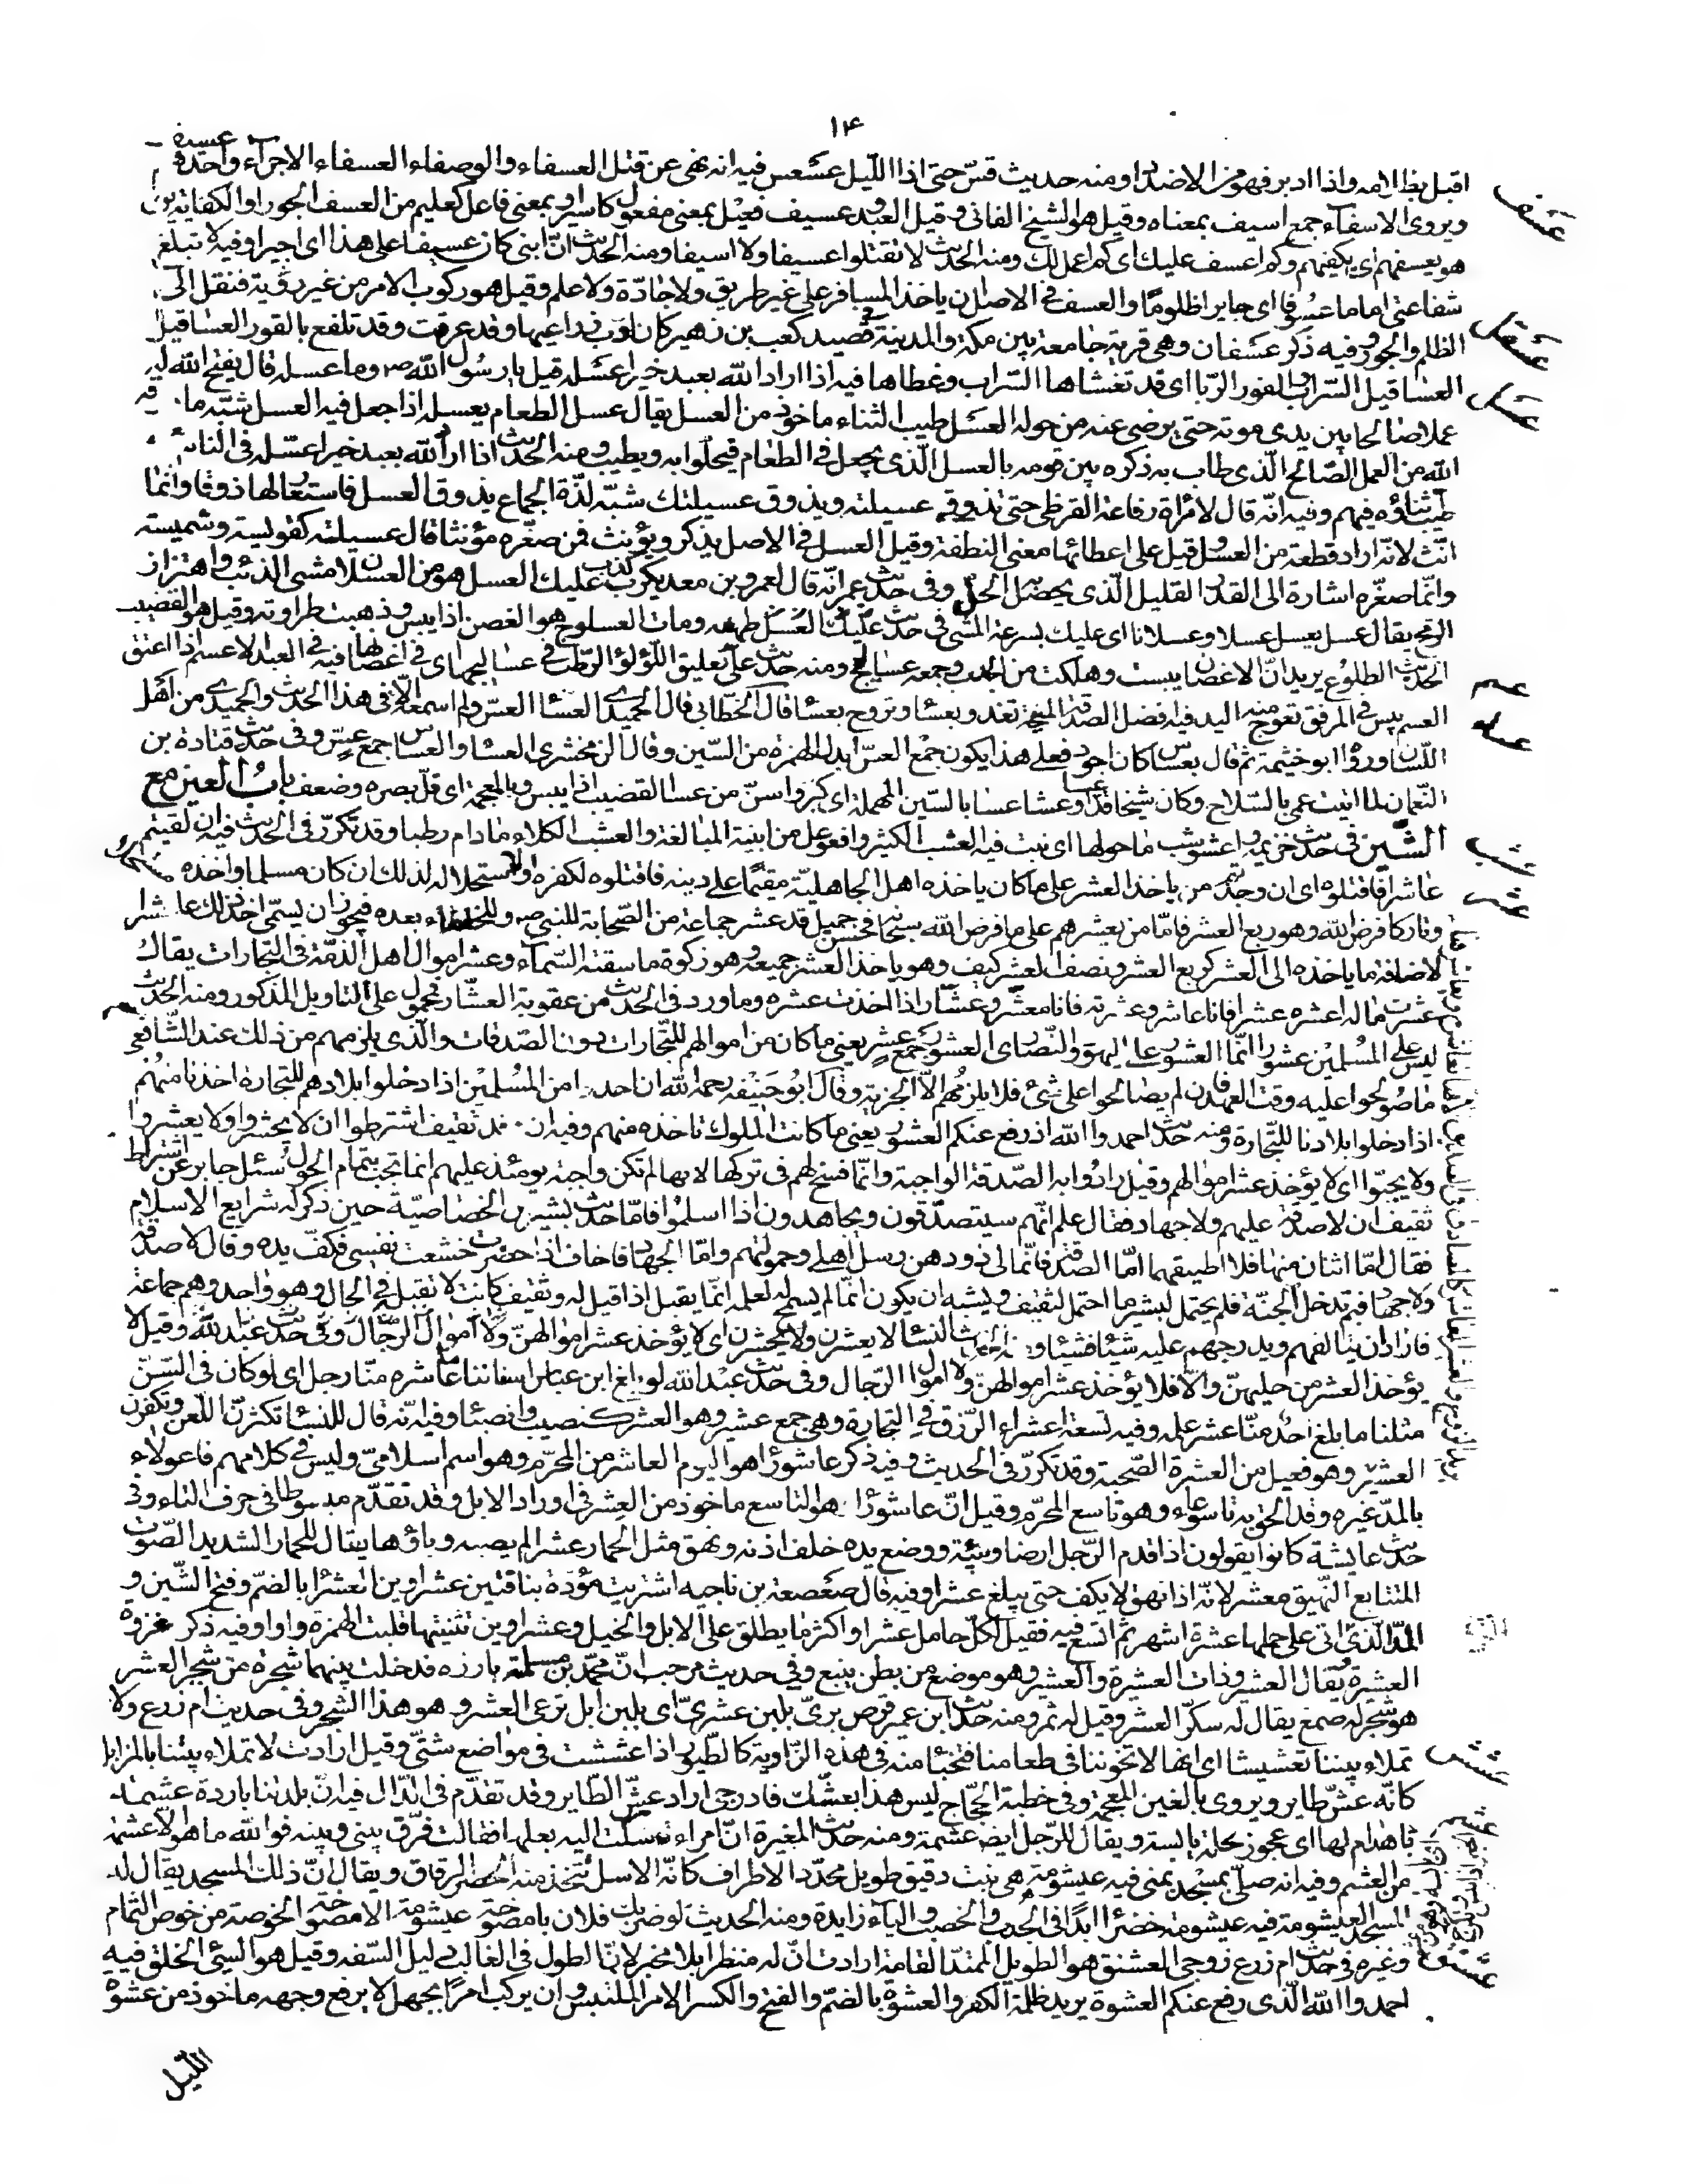 ١٤
اقبل بظلامه واذا ادبر فهو من الاضداد ومنه حديث قسّ حتى اذا اللّيل عسعس فيه انه نهى عن قتل العسفاء والوصفاء العسفاء الاجراء واحدهم عسيف
ويروى الاسفاء جمع اسيف بمعناه وقيل هو الشيخ الفانى وقيل العبد وعسيف فعيل بمعنى مفعول كاسير او بمعنى فاعل كعليم من العسف الجور او الكفاية يق
هو يعسفهم اى يكفيهم وكم اعسف عليك اى كم اعمل لك ومنه الحديث لا تقتلوا عسيفا ولا اسيفا ومنه الحديث انّ ابنى كان عسيفا على هذا اى اجيرا وفيه لا تبلغ
شفاعتى اماما عسوفا اى جايرا ظلوما والعسف فى الاصل ان ياخذ المسافر على غير طريق ولا جادّة ولا علم وقيل هو ركوب الامر من غير رويّة فنقل الى
الظلم والجور وفيه ذكر عسفان وهى قرية جامعة بين مكة والمدينة فى قصيد كعب بن زهير كان اوب ذراعيها وقد عرقت وقد تلفع بالقور العساقيل
العساقيل السّراب والقور الرّبا اى قد تغشاها السّراب وغطاها فيه اذا اراد الله بعبد خيرا عسله قيل يا رسول الله ص وما عسله قال يفتح الله له
عملا صالحا بين يدى موته حتى يرضى عنه من حوله العسل طيب الثناء ماخوذ من العسل يقال عسل الطعام يعسله اذا جعل فيه العسل شبّه ما رزقه
الله من العمل الصّالح الّذى طاب به ذكره بين قومه بالعسل الّذى يجعل فى الطعام فيحلوا به ويطيب ومنه الحديث اذا اراد الله بعبد خيرا عسّله فى الناس
طيب ثناؤه فيهم وفيه انّه قال لامراة رفاعة القرظى حتى تذوقى عسيلته ويذوق عسيلتك شبّه لذّة الجماع بذوق العسل فاستعار لها ذوقا وانّما
انّث لانّه اراد قطعة من العسل وقيل على اعطائها معنى النطفة وقيل العسل فى الاصل يذكر ويؤنث فمن صغّره مؤنثا قال عسيلة كقويسة وشميسة
وانّما صغّره اشارة الى القدر القليل الّذى يحصل به الحل وفى حديث عمر انّه قال لعمرو بن معديكرب كذب عليك العسل هو من العسلان مشى الذئب واهتزاز
الرمح يقال عسل يعسل عسلا وعسلانا اى عليك بسرعة المشى فى حديث ومات العسلوج هو الغصن اذا يبس وذهبت طراوته وقيل هو القضيب
الحديث الطلوع يريد انّ الاغصان يبست وهلكت من الجدب وجمعه عساليج ومنه حديث على تعليق اللّؤلؤ الرّطب فى عساليجها اى فى اغصانها فيه فى العبد الاعسم اذا اعتق
العسم يبس فى المرفق تعوج منه اليد فيه افضل الصدقة المنيحة تغدو بعسا وتروح بعسا قال الخطابى قال الحميدى العسا العسّ ولم اسمعه الا فى هذا الحديث والحميدى من اهل
اللّسان ورواه ابو خيثمة ثم قال بعساس كان اجود فعلى هذا يكون جمع العسّ ابدل الهمزة من السّين وقال الزمخشرى العساء والعساس جمع عسّ وفى حديث قتادة بن
النّعمان لما اتيت عمى بالسّلاح وكان شيخا قد عسا او عشا عسا بالسّين المهملة اى كبر واسنّ من عسا القضيب اذا يبس وبالمعجمة اى قلّ بصره وضعف باب العين مع
الشين فى حديث خزيمة واعشوشب ما حولها اى نبت فيه العشب الكثير وافعوعل من ابنية المبالغة والعشب الكلاء ما دام رطبا وقد تكرّر فى الحديث فيه ان لقيتم
عاشرا فاقتلوه اى ان وجدتم من ياخذ العشر على ما كان ياخذه اهل الجاهليّة مقيما على دينه فاقتلوه لكفره او لاستحلاله لذلك ان كان مسلما واخذه مستحلا
وتاركا فرض الله وهو ربع العشر فامّا من يعشرهم على ما فرض الله سبحانه فحسن جميل قد عشر جماعة من الصّحابة للنبى ص وللخلفاء بعده فيجوز ان يسمّى اخذ ذلك عاشرا
لاضافة ما ياخذه الى العشر كربع العشر ونصف العشر كيف وهو ياخذ العشر جميعه وهو زكوة ما سقته السّماء وعشر اموال اهل الذمّة فى التجارات يقال
عشرت ماله اعشره عشرا فانا عاشر وعشرته فانا معشر وعشّار اذا اخذت عشره وما ورد فى الحديث من عقوبة العشّار محمول على التاويل المذكور ومنه الحديث
ليس على المسلمين عشور انّما العشور على اليهود والنّصارى العشور جمع عشر يعنى ما كان من اموالهم للتّجارات دون الصّدقات والّذى يلزمهم من ذلك عند الشّافعى
ما صولحوا عليه وقت العهد فان لم يصالحوا على شئ فلا يلزمهم الّا الجزية وقال ابو حنيفه رحمه الله ان اخذوا من المسلمين اذا دخلوا بلادهم للتجارة اخذنا منهم
اذا دخلوا بلادنا للتّجارة ومنه حديث احمدوا الله اذ رفع عنكم العشور يعنى ما كانت الملوك تاخذه منهم وفيه ان وفد ثقيف اشترطوا ان لا يحشروا ولا يعشروا
ولا يجبّوا اى لا يؤخذ عشر اموالهم وقيل ارادوا به الصّدقة الواجبة وانّما فسح لهم فى تركها لانها لم تكن واجبة يومئذ عليهم انما تجب بتمام الحول سئل جابر عن اشتراط
ثقيف ان لا صدقة عليهم ولا جهاد فقال علم انّهم سيتصدّقون ويجاهدون اذا اسلموا فامّا حديث بشير بن الخصاصيّة حين ذكر له شرايع الاسلام
فقال امّا اثنان منها فلا اطيقهما امّا الصدقة فانّما لى ذود هن رسل اهلى وحمولتهم وامّا الجهاد فاخاف اذا حضرت خشعت نفسى فكفّ يده وقال لا صدقة
ولا جهاد فبم تدخل الجنّة فلم يحتمل لبشير ما احتمل لثقيف ويشبه ان يكون انّما لم يسمح له لعلمه انّما يقبل اذا قيل له وثقيف كانت لا تقبل فى الحال وهو واحد وهم جماعة
فاراد ان يتالفهم ويدرجهم عليه شيئا فشيئا النسا لا يعشرن ولا يحشرن اى لا يؤخذ عشر اموالهنّ ولا اموال الرّجال وفى حديث عبد الله وقيل لا
يؤخذ العشر من حليهنّ والّا فلا يؤخذ عشر اموالهنّ ولا اموال الرّجال وفى حديث عبد الله لو بلغ ابن عباس اسناننا ما عاشره منّا رجل اى لو كان فى السّن
مثلنا ما بلغ احد منّا عشر علمه وفيه تسعة اعشراء الرّزق فى التجارة وهى جمع عشير وهو العشر كنصيب وانصباء وفيه انّه قال للنساء تكثرن اللّعن وتكفرن
العشير وهو فعيل من العشرة الصّحبة وقد تكرّر فى الحديث وفيه ذكر عاشورا هو اليوم العاشر من المحرّم وهو اسم اسلامىّ وليس فى كلامهم فاعولاء
بالمدّ غيره وقد الحق به تاسوعاء وهو تاسع المحرّم وقيل انّ عاشورا هو التاسع ماخوذ من العشر فى اوراد الابل وقد تقدّم مبسوطا فى حرف التاء وفى
حديث عايشة كانوا يقولون اذا قدم الرّجل ارضا وبيئة ووضع يده خلف اذنه ونهق مثل الحمار عشرا لم يصبه وباؤها يقال للحمار الشديد الصّوت
المتتابع النّهيق معشر لانّه اذا نهق لا يكف حتى يبلغ عشرا وفيه قال صعصعة بن ناجيه اشتريت موؤدة بناقتين عشراوين العشرا بالضمّ وفتح الشّين و
المدّ الّتى اتى على حملها عشرة اشهر ثم اتسع فيه فقيل لكلّ حامل عشرا واكثر ما يطلق على الابل والخيل وعشراوين تثنيتها قلبت الهمزة واوا وفيه ذكر غزوة
العشيرة يقال العشير وذات العشيرة والعشير وهو موضع من بطن ينبع وفى حديث مرحب انّ محمّد بن مسلمة بارزه فدخلت بينهما شجرة من شجر العشر
هو شجر له صمغ يقال له سكّر العشر وقيل له ثمر ومنه حديث ابن عمير قرص برّى بلبن عشرىّ اى بلبن ابل ترعى العشر وهو هذا الشجر وفى حديث ام زرع ولا
تملاء بيتنا تعشيشا اى انها لا تخوننا فى طعامنا فتخبئا منه فى هذه الزّاوية كالطّيور اذا عششت فى مواضع شتّى وقيل ارادت لا تملاء بيتنا بالمزابل
كانّه عشّ طاير ويروى بالغين المعجمة وفى خطبة الحجّاج ليس هذا بعشّك فادرجى اراد عشّ الطّاير وقد تقدّم فى الدّال فيه انّ بلدتنا باردة عشمة
اى عجوز قحلة يابسة ويقال للرّجل ايضا عشمة ومنه حديث المغيرة انّ امراة شكت اليه بعلها فقالت فرّق بينى وبينه فوالله ما هو الا عشمة
من العشم وفيه انه صلّى بمسجد بمنى فيه عيشومة هى نبت دقيق طويل محدّد الاطراف كانّه الاسل تتخذ منه الحصر الرقاق ويقال انّ ذلك المسجد يقال له
المسجد العيشومة فيه عيشومة خضرا ابدا فى الجدب والخصب والياء زايدة ومنه الحديث لو ضربك فلان بامصوخة عيشومة الامصوخة الخوصة من خوص الثمام
وغيره فى حديث ام زرع زوجى العشنق هو الطويل الممتدّ القامة ارادت انّ له منظرا بلا مخبر لانّ الطول فى الغالب دليل السّفه وقيل هو السيّئ الخلق فيه
احمدوا الله الّذى رفع عنكم العشوة يريد ظلمة الكفر والعشوة بالضمّ والفتح والكسر الامر الملتبس وان يركب امرا بجهل لا يرفع وجهه ماخوذ من عشوة
اللّيل
عسف
عسقل
عسل
عسم
عشب
عشر
عشش
عشم
عشنق